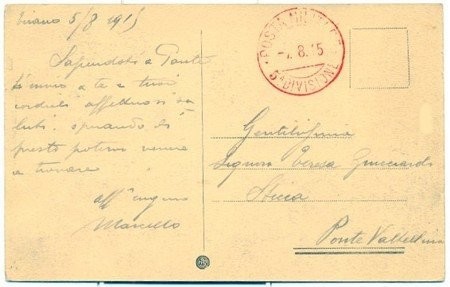 Tirano 5/8 1915
Sapendoti a Ponte
invio a te e tuoi
cordiali affettuosi sa
luti, sperando di
presto potervi venire
a trovare
aff
Marcello
POSTA MILITARE
8. 15
5ª DIVISIONE
Gentilissima
Signora Teresa Guicciardi
Ponte Valtellina